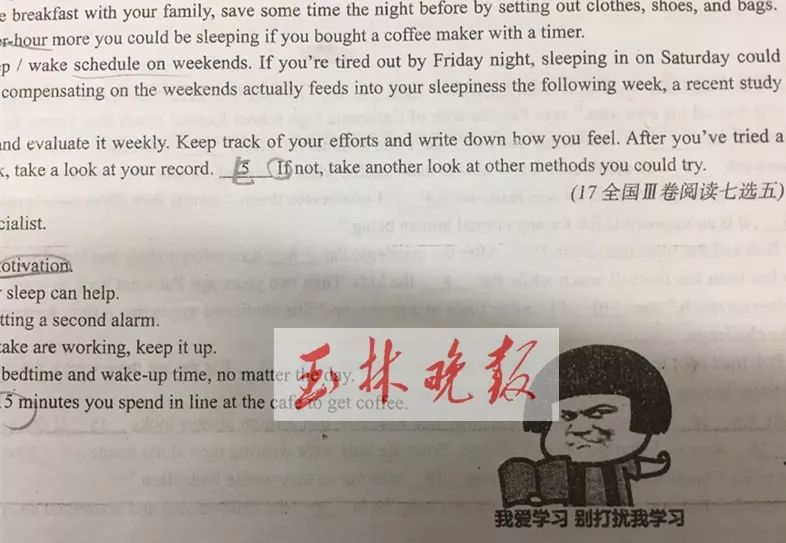 e breakfast with your family, save some time the night before by setting out clothes, shoes, and bags.
r-hour more you could be sleeping if you bought a coffee maker with a timer.
p / wake schedule on weekends. If you're tired out by Friday night, sleeping in on Saturday could
compensating on the weekends actually feeds into your sleepiness the following week, a recent study
nd evaluate it weekly. Keep track of your efforts and write down how you feel. After you've tried a
, take a look at your record. 5 If not, take another look at other methods you could try.
(17 全国Ⅲ卷阅读七选五)
cialist.
otivation.
r sleep can help.
tting a second alarm.
take are working, keep it up.
bedtime and wake-up time, no matter the day.
5 minutes you spend in line at the cafe to get coffee.
玉林晚报
我爱学习 别打扰我学习